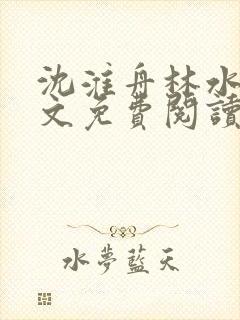 沈淮舟林水
文免費閱讀
水夢藍天